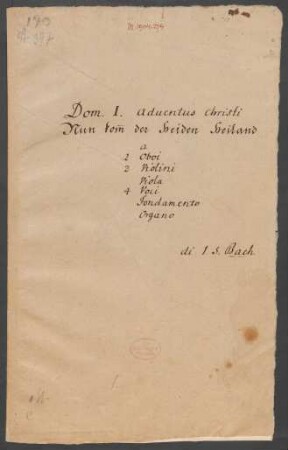 Dom. I. Adventus Christi
Nun kom̄ der Heiden Heiland
a
2 Oboi
2 Violini
Viola
4 Voci
Fondamento
Organo
di I. S. Bach.